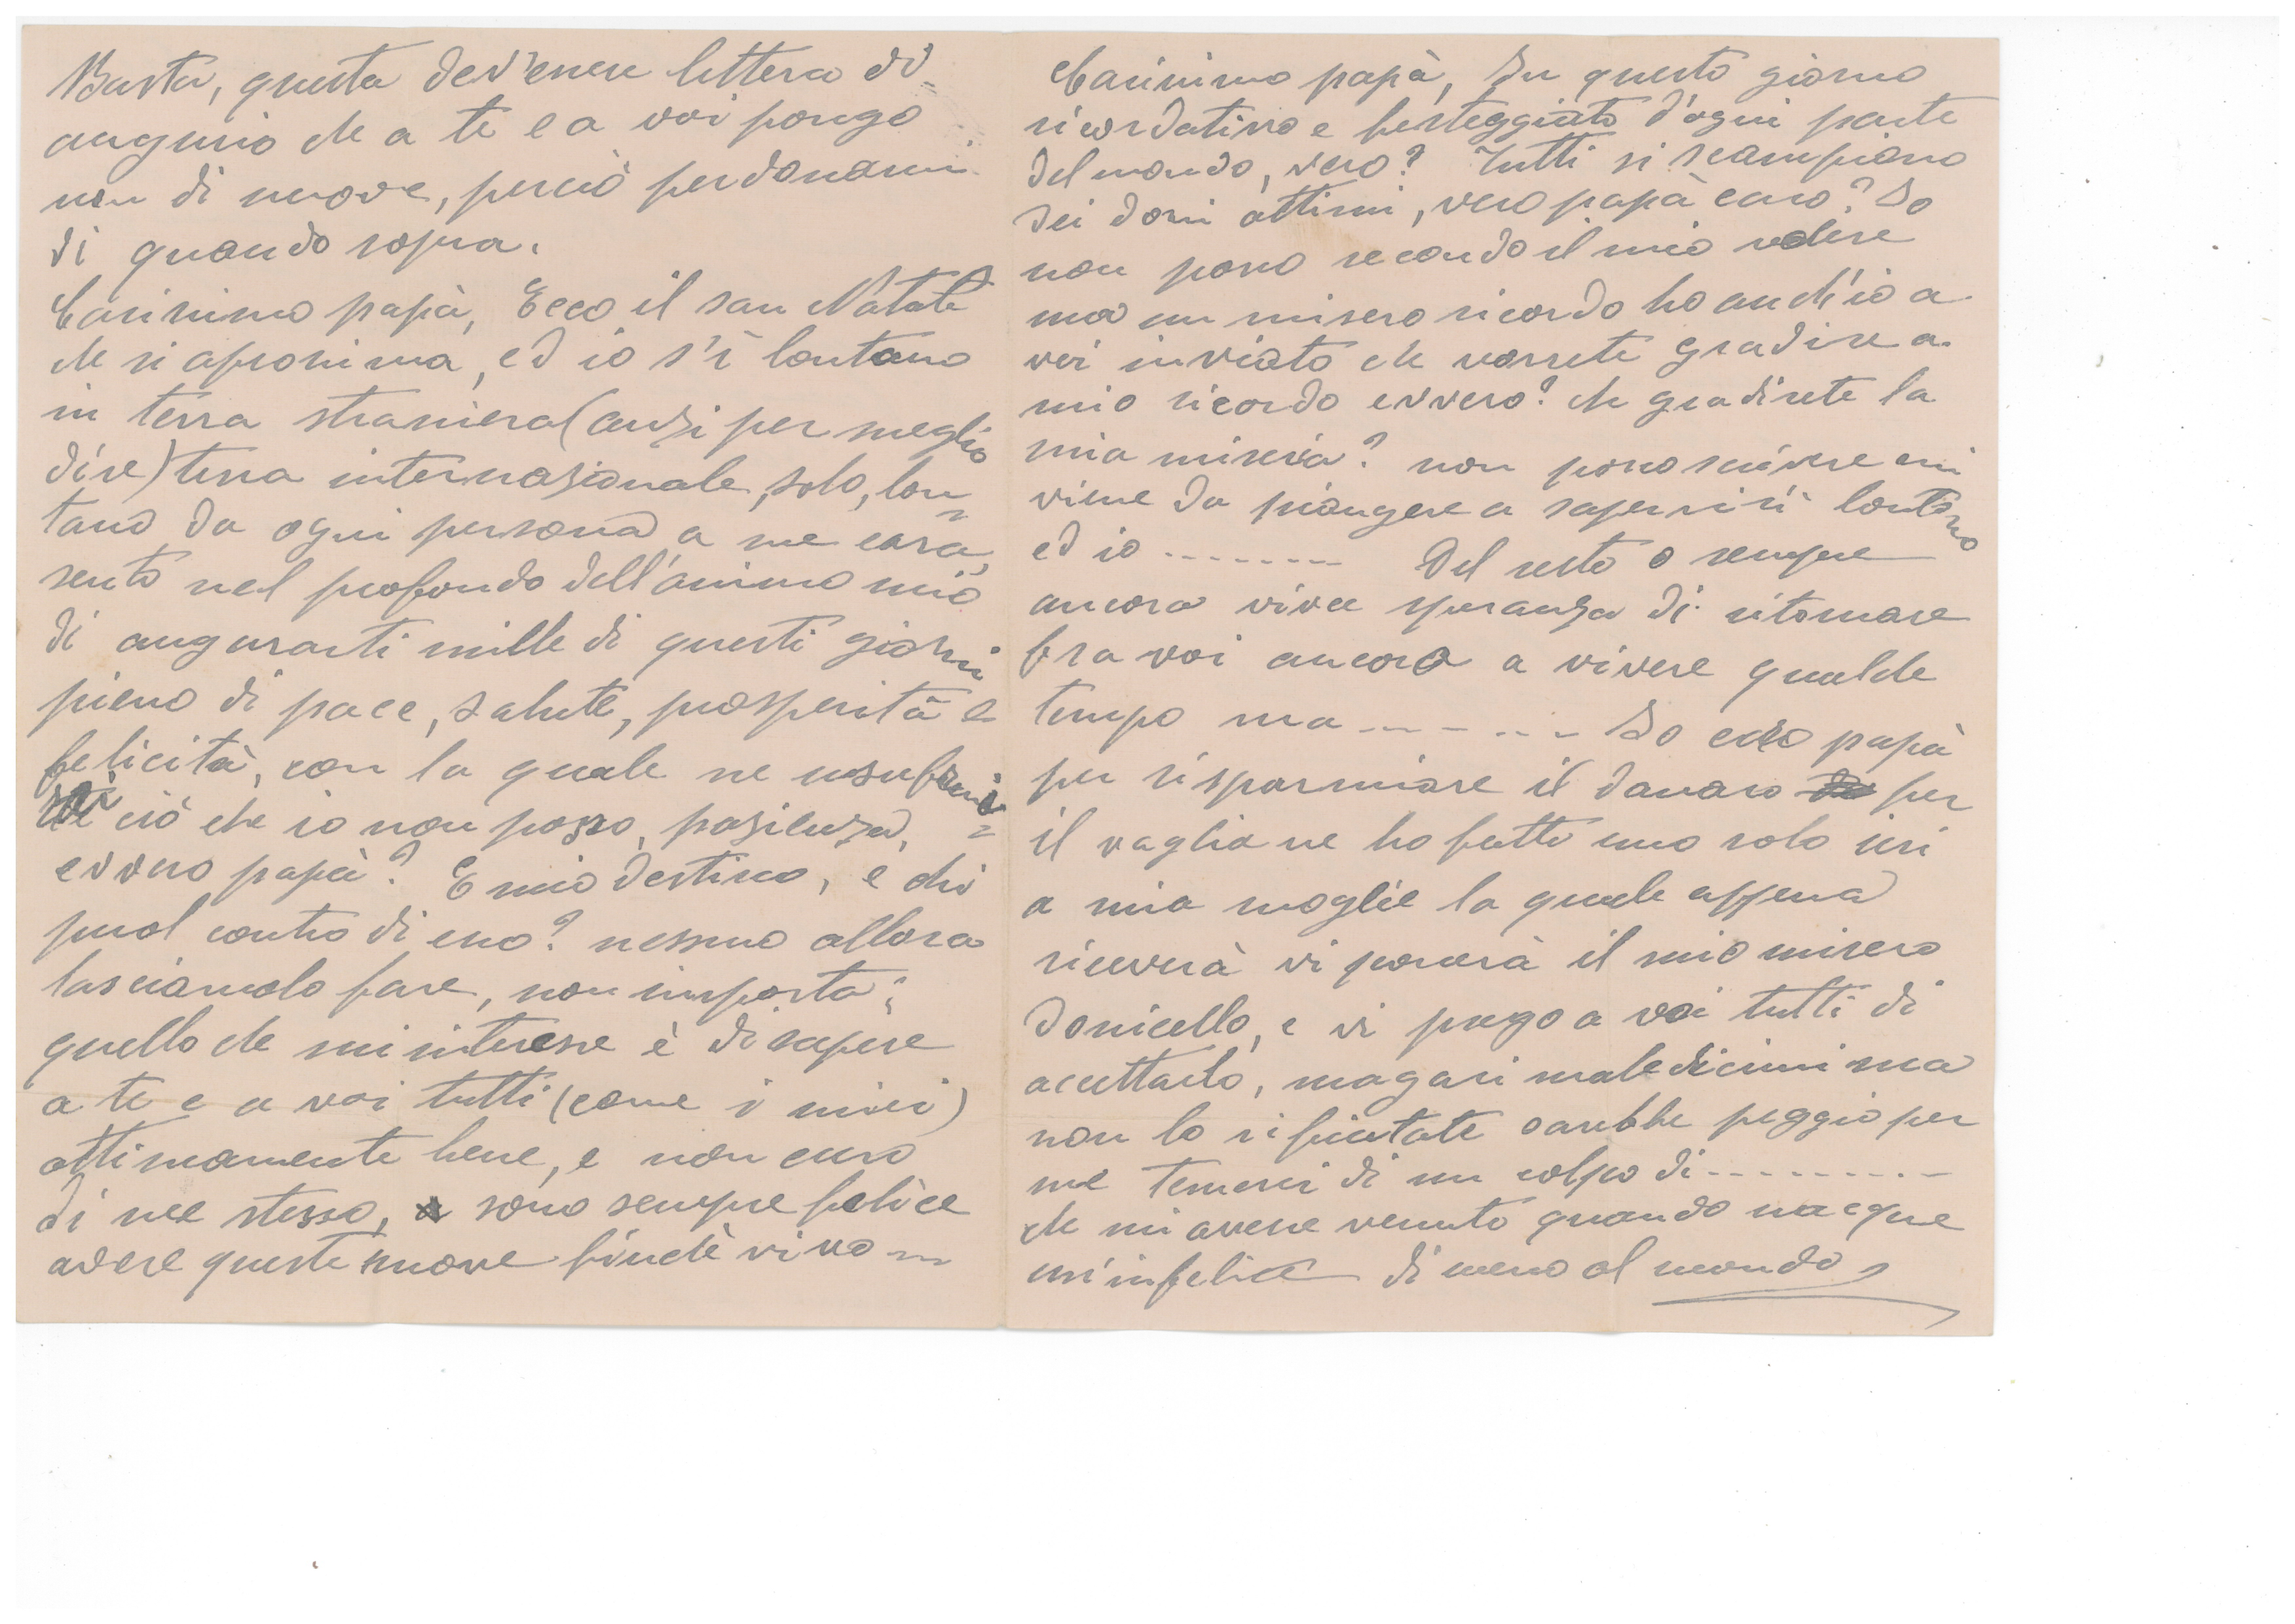 Basta, questa dev'essere lettera di
augurio che a te e a voi pongo
non di nuove, perciò perdonami
di quando sopra.
Carissimo papà, Ecco il san Natale
che si aprossima, ed io s'ì lontano
in terra straniera (anzi per meglio
dire) terra internazionale, solo, lon=
tano da ogni persona a me cara,
sento nel profondo dell'animo mio
di augurarti mille di questi giorni
pieno di pace, salute, prosperità e
felicità, con la quale ne usufrui=
ciò che io non posso, pasienza,
evvero papà? E mio destino, e chi
puol contro di esso? nessuno allora
lasciamolo fare, non importa;
quello che mi interesse è di sapere
a te e a voi tutti (come i miei)
ottimamente bene, e non curo
di me stesso, sono sempre felice
avere queste nuove finchè vivo
Carissimo papà, In questo giorno
ricordativo e festeggiato d'ogni parte
del mondo, vero? Tutti si scampiano
dei doni ottimi, vero papà caro? Io
non posso secondo il mio volere
ma un misero ricordo ho anch'io a
voi inviato che vorrete gradire a
mio ricordo evvero? che gradirete la
mia miseria? non posso scrivere mi
viene da piangere a sapervi sì lontano
ed io -------- Del resto o sempre
ancora viva speranza di ritornare
fra voi ancora a vivere qualche
tempo ma ------ Io caro papà
per risparmiare il danaro per
il vaglia ne ho fatto uno solo ieri
a mia moglie la quale appena
riceverà vi porterà il mio misero
donicello, e vi prego a voi tutti di
accettarlo, magari maledicimi ma
non lo rifiutate sarebbe peggio per
me temerei di un colpo di ---------
che mi avesse venuto quando nacque
un'infelice di meno al mondo